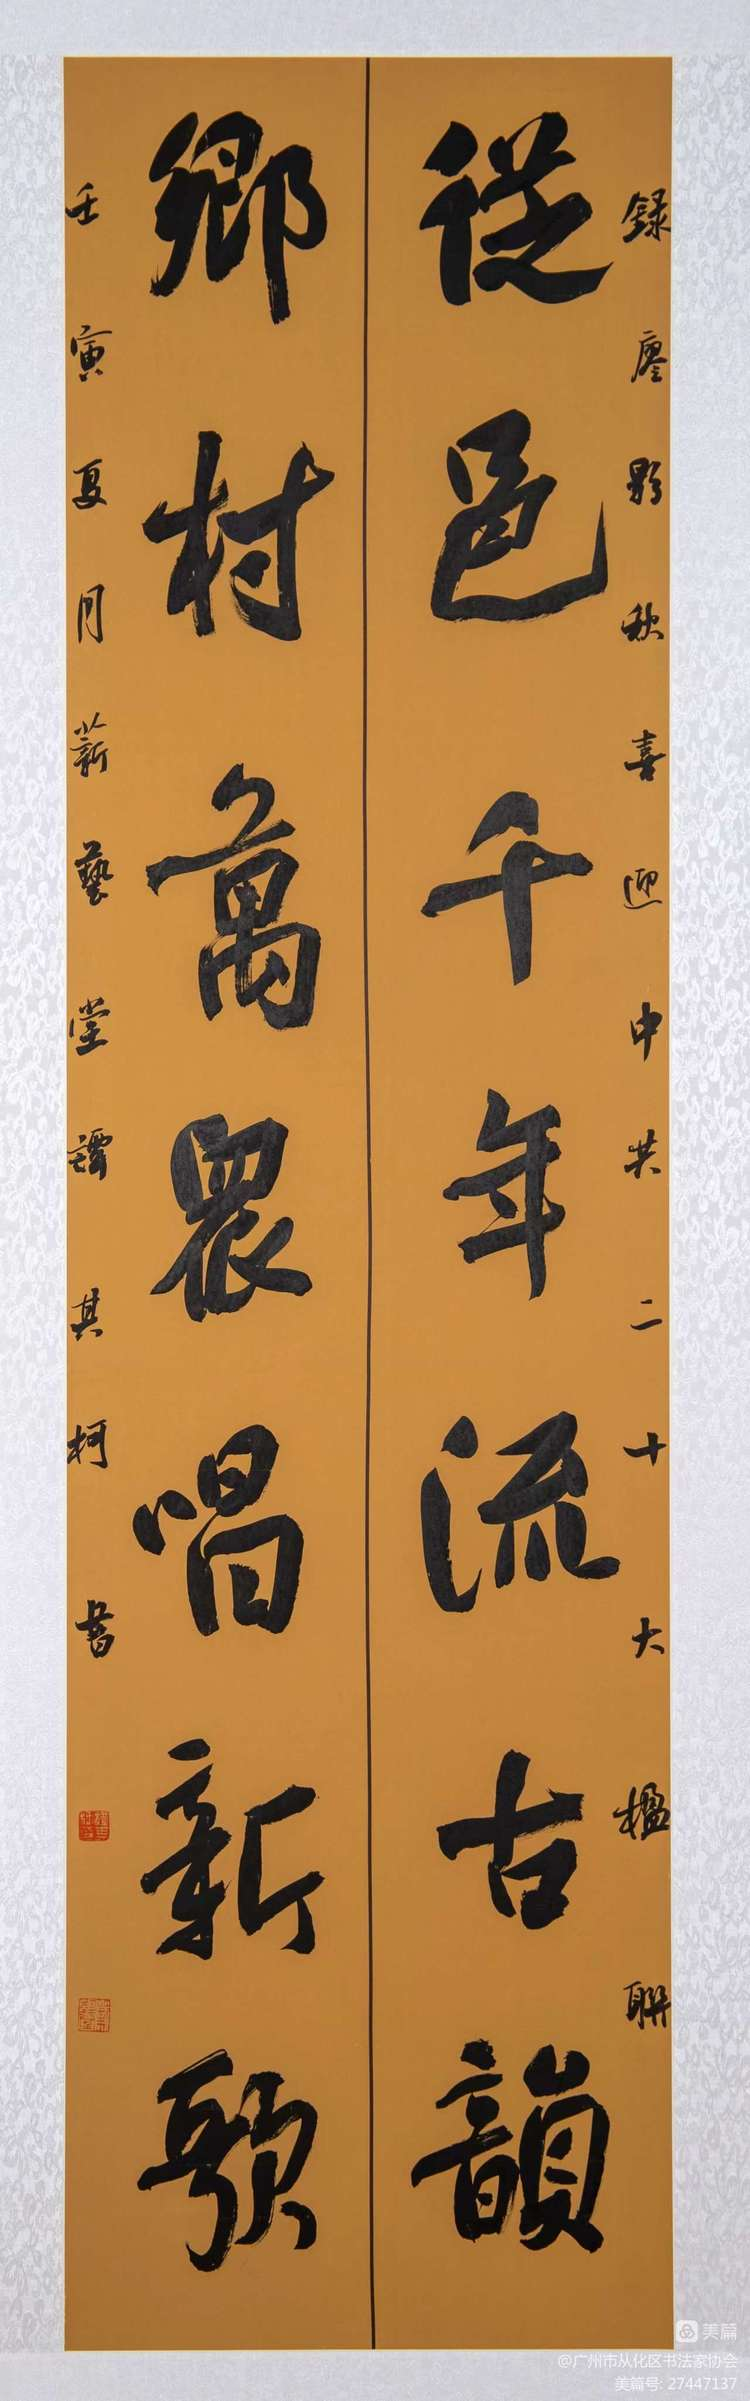 錄廖影秋喜迎中共二十大楹聯
從邑千年流古韻
鄉村萬眾唱新歌
壬寅夏月薪藝堂譚其柯書
美篇
@广州市从化区书法家协会
美篇号: 27447137